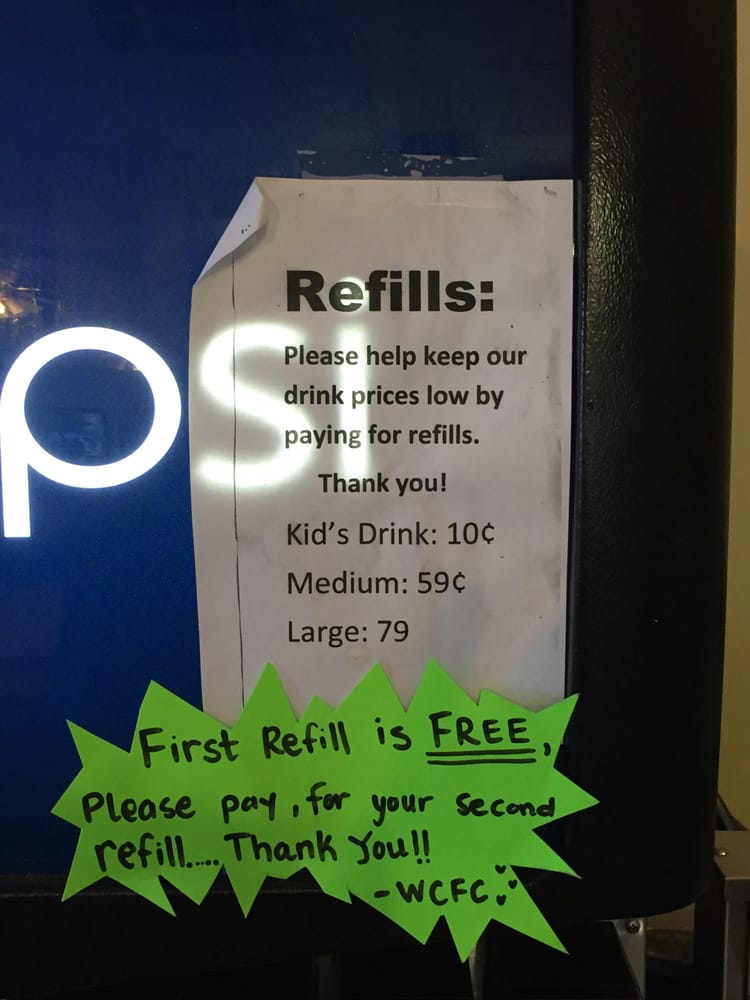 psi
Refills:
Please help keep our
drink prices low by
paying for refills.
Thank you!
Kid's Drink: 10¢
Medium: 59¢
Large: 79
First Refill is FREE,
Please pay, for your second
refill..... Thank You!!
-WCFC